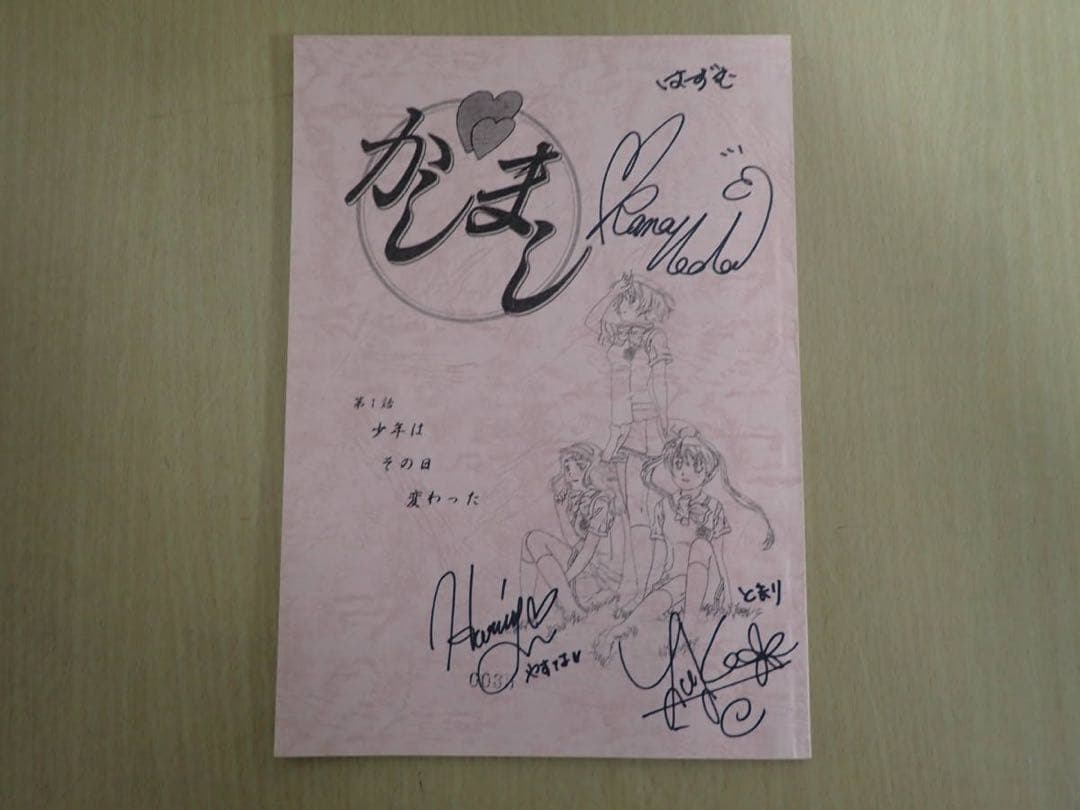 かしまし
はずむ
Kana Ueda
第1話
少年は
その日
変わった
とまり
やすな
003